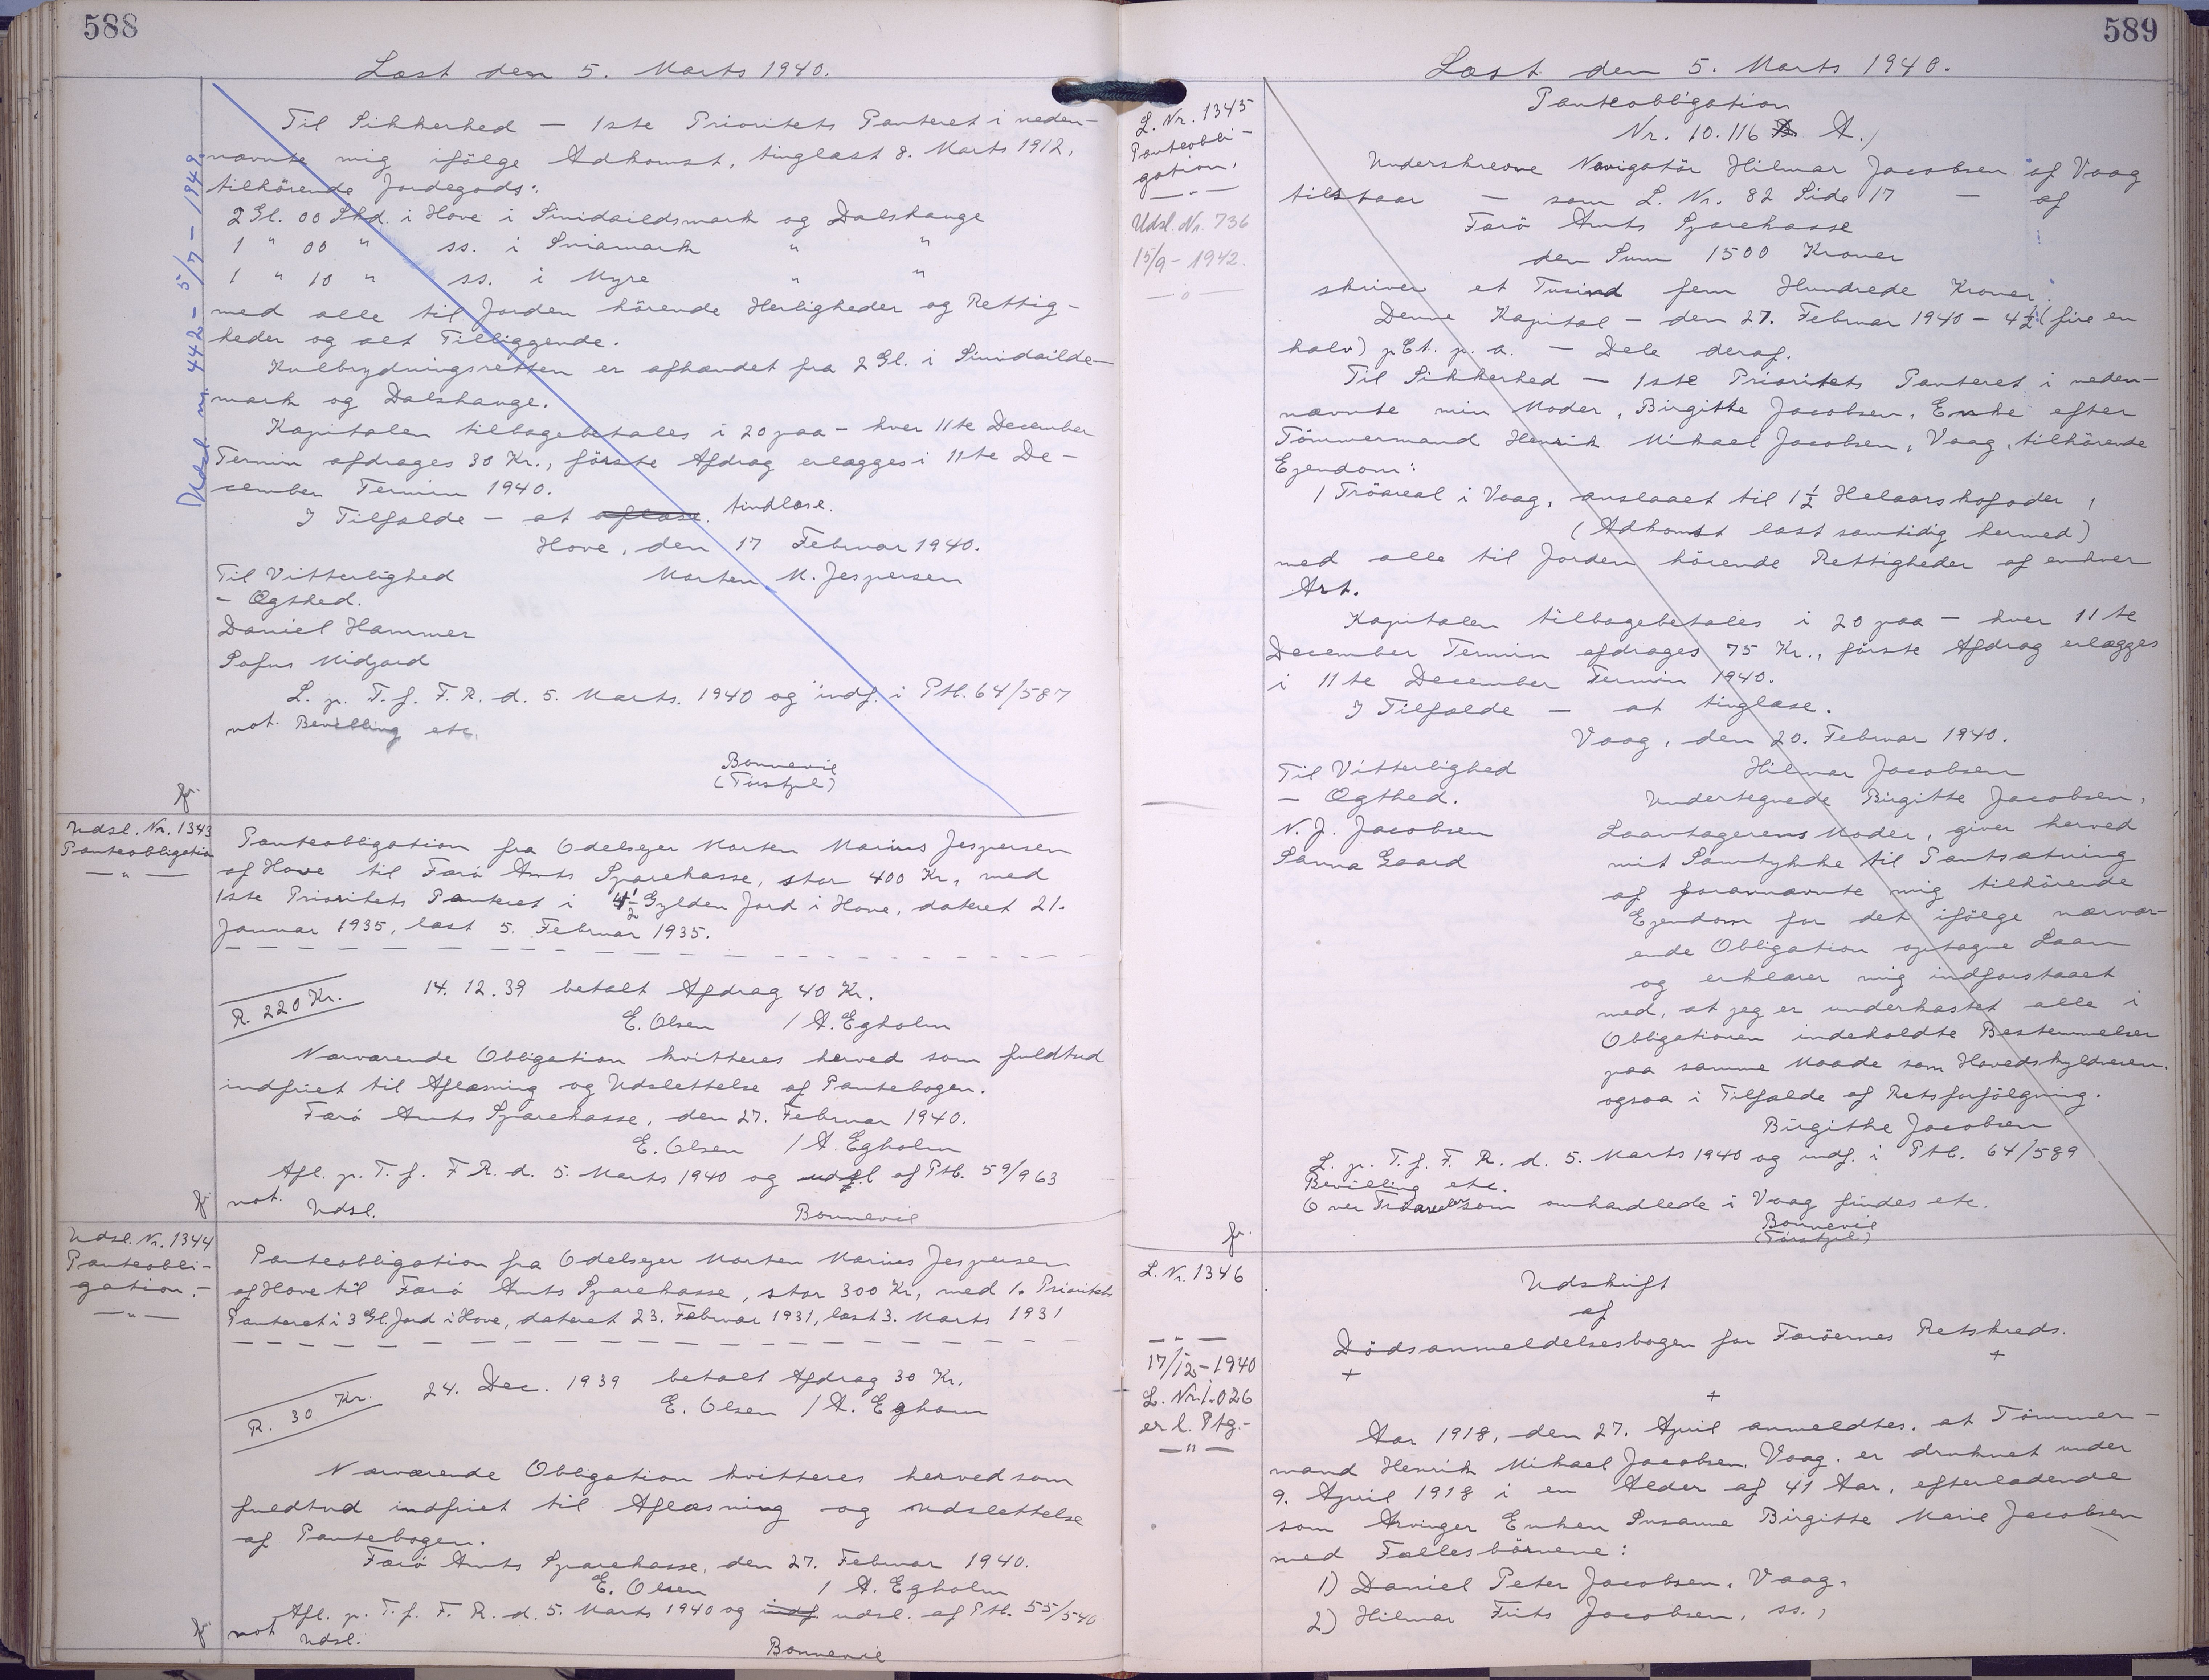 588
Læst den 5. Marts 1940.
Til Sikkerhed — 1ste Prioritets Panteret i neden-
nævnte mig ifölge Adkomst, tinglæst 8. Marts 1912,
tilhörende Jordegods:
2 Gl. 00 Skd. i Hove i Sinidaildsmark og Dalshauge
1 " 00 " ss. i Sniamark " "
1 " 10 " ss. i Myre " "
med alle til Jorden hörende Herligheder og Rettig-
heder og alt Tilliggende.
Kulbrydningsretten er afhændet fra 2 Gl. i Sinidailds-
mark og Dalshauge.
Kapitalen tilbagebetales i 20 paa — hver 11te December
Termin afdrages 30 Kr., förste Afdrag erlægges i 11te De-
cember Termin 1940.
I Tilfælde — at aflæse. tindlæse.
Hove, den 17 Februar 1940.
Til Vitterlighed Morten M. Jespersen
- Ægthed.
Daniel Hammer
Sofus Midjord
L. p. T. f. F. R. d. 5. Marts. 1940 og indf. i Ptb. 64/587
not. Bevilling etc.
Bonnevie
(Tinstpl)
fr.
Udsl. nr. 442 - 5/7 - 1949.
Udsl. Nr. 1343
Panteobligation
— " —
Panteobligation fra Odelsejer Morten Marius Jespersen
af Hove til Færö Amts Sparekasse, stor 400 Kr, med
1ste Prioritets Panteret i 4½ Gylden Jord i Hove, dateret 21.
Januar 1935, læst 5. Februar 1935.
R. 220 Kr.
14. 12. 39 betalt Afdrag 40 Kr.
E. Olsen / A. Egholm
Nærværende Obligation kvitteres herved som fuldtud
indfriet til Aflæsning og Udslettelse af Pantebogen.
Færö Amts Sparekasse, den 27. Februar 1940.
E. Olsen / A. Egholm
Afl. p. T. f. F R. d. 5. Marts 1940 og udsl af Ptb. 59/963
not. Udsl.
Bonnevie
fr
Udsl. Nr. 1344
Panteobli-
gation.-
— " —
Panteobligation fra Odelsejer Morten Marius Jespersen
af Hove til Færö Amts Sparekasse, stor 300 Kr, med 1. Prioritets
Panteret i 3 Gl. Jord i Hove, dateret 23. Februar 1931, læst 3. Marts 1931
R. 30 Kr.
24. Dec. 1939 betalt Afdrag 30 Kr.
E. Olsen / A. Eghom
Nærværende Obligation kvitteres herved som
fuldtud indfriet til Aflæsning og Udslettelse
af Pantebogen.
Færö Amts Sparekasse, den 27. Februar 1940.
E. Olsen / A. Egholm
Afl. p. T. f. F. R. d. 5. Marts 1940 og indf. udsl. af Ptb. 55/540
not Udsl.
Bonnevie
fr
589
Læst den 5. Marts 1940.
L. Nr. 1345
Panteobli-
gation.
— " —
Udsl. Nr. 736
15/9 - 1942.
Panteobligation
Nr. 10.116 B A./
Underskrevne Navigatör Hilmar Jacobsen af Vaag
tilstaar — som L. Nr. 82 Side 17 — af
Færö Amts Sparekasse
den Sum 1500 Kroner
skriver et Tusind fem Hundrede Kroner.
Denne Kapital — den 27. Februar 1940 - 4½ (fire en
halv) pCt. p. a. — Dele deraf.
Til Sikkerhed — 1ste Prioritets Panteret i neden-
nævnte min Moder, Birgitte Jacobsen, Enke efter
Tömmermand Henrik Mikael Jacobsen, Vaag, tilhörende
Ejendom:
1 Tröareal i Vaag, anslaaet til 1½ Helaarskofoder,
(Adkomst læst samtidig hermed)
med alle til Jorden hörende Rettigheder af enhver
Art.
Kapitalen tilbagebetales i 20 paa — hver 11te
December Termin afdrages 75 Kr., förste Afdrag erlægges
i 11te December Termin 1940.
I Tilfælde — at tinglæse.
Vaag, den 20. Februar 1940.
Til Vitterlighed Hilmar Jacobsen
- Ægthed.
N. J. Jacobsen
Sanna Gaard
Undertegnede Birgitte Jacobsen,
Laantagerens Moder, giver herved
mit Samtykke til Pantsætning
af forannævnte mig tilhörende
Ejendom for det ifölge nærvær-
ende Obligation optagne Laan
og erklærer mig indforstaaet
med, at jeg er underkastet alle i
Obligationen indeholdte Bestemmelser
paa samme Maade som Hovedskyldneren.
ogsaa i Tilfælde af Retsforfölgning.
Birgithe Jacobsen
L. p. T. f. F. R. d. 5. Marts 1940 og indf. i Ptb. 64/589
Bevilling etc.
Over Tröarealer som omhandlede i Vaag findes etc.
Bonnevie
(Tinstpl)
fr.
L. Nr. 1346
— " —
17/12 - 1940
L. Nr. 1.026
er l. Ptg.-
— " —
Udskrift
af
Dödsanmeldelsesbogen for Færöernes Retskreds.
+ +
+
Aar 1918, den 27. April anmeldtes, at Tömmer-
mand Henrik Mikael Jacobsen, Vaag, er druknet under
9. April 1918 i en Alder af 41 Aar, efterladende
som Arvinger Enken Susanne Birgitte Marie Jacobsen
med Fællesbörnene:
1) Daniel Peter Jacobsen, Vaag,
2) Hilmar Frits Jacobsen, ss.,